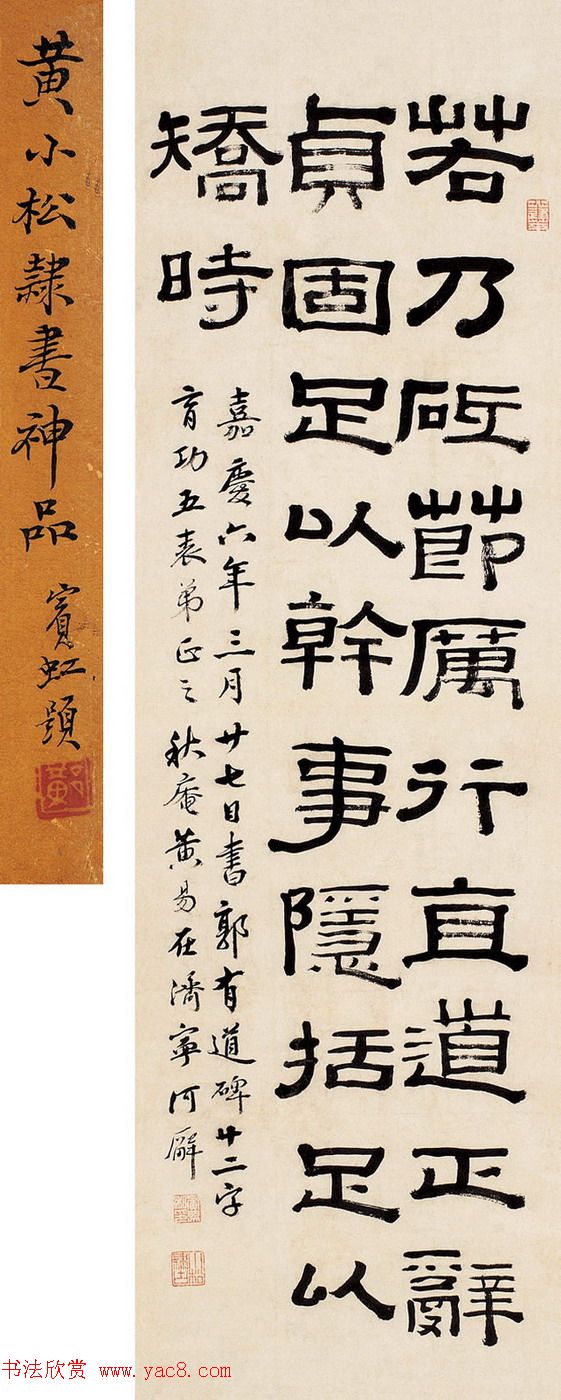 若乃砥節厲行直道正辭
貞固足以幹事隱括足以
矯時
嘉慶六年三月廿七日書郭有道碑廿二字
育功五表弟正之秋庵黃易在濟寧河廨
黃小松隸書神品
賓虹題
书法欣赏 www.yac8.com